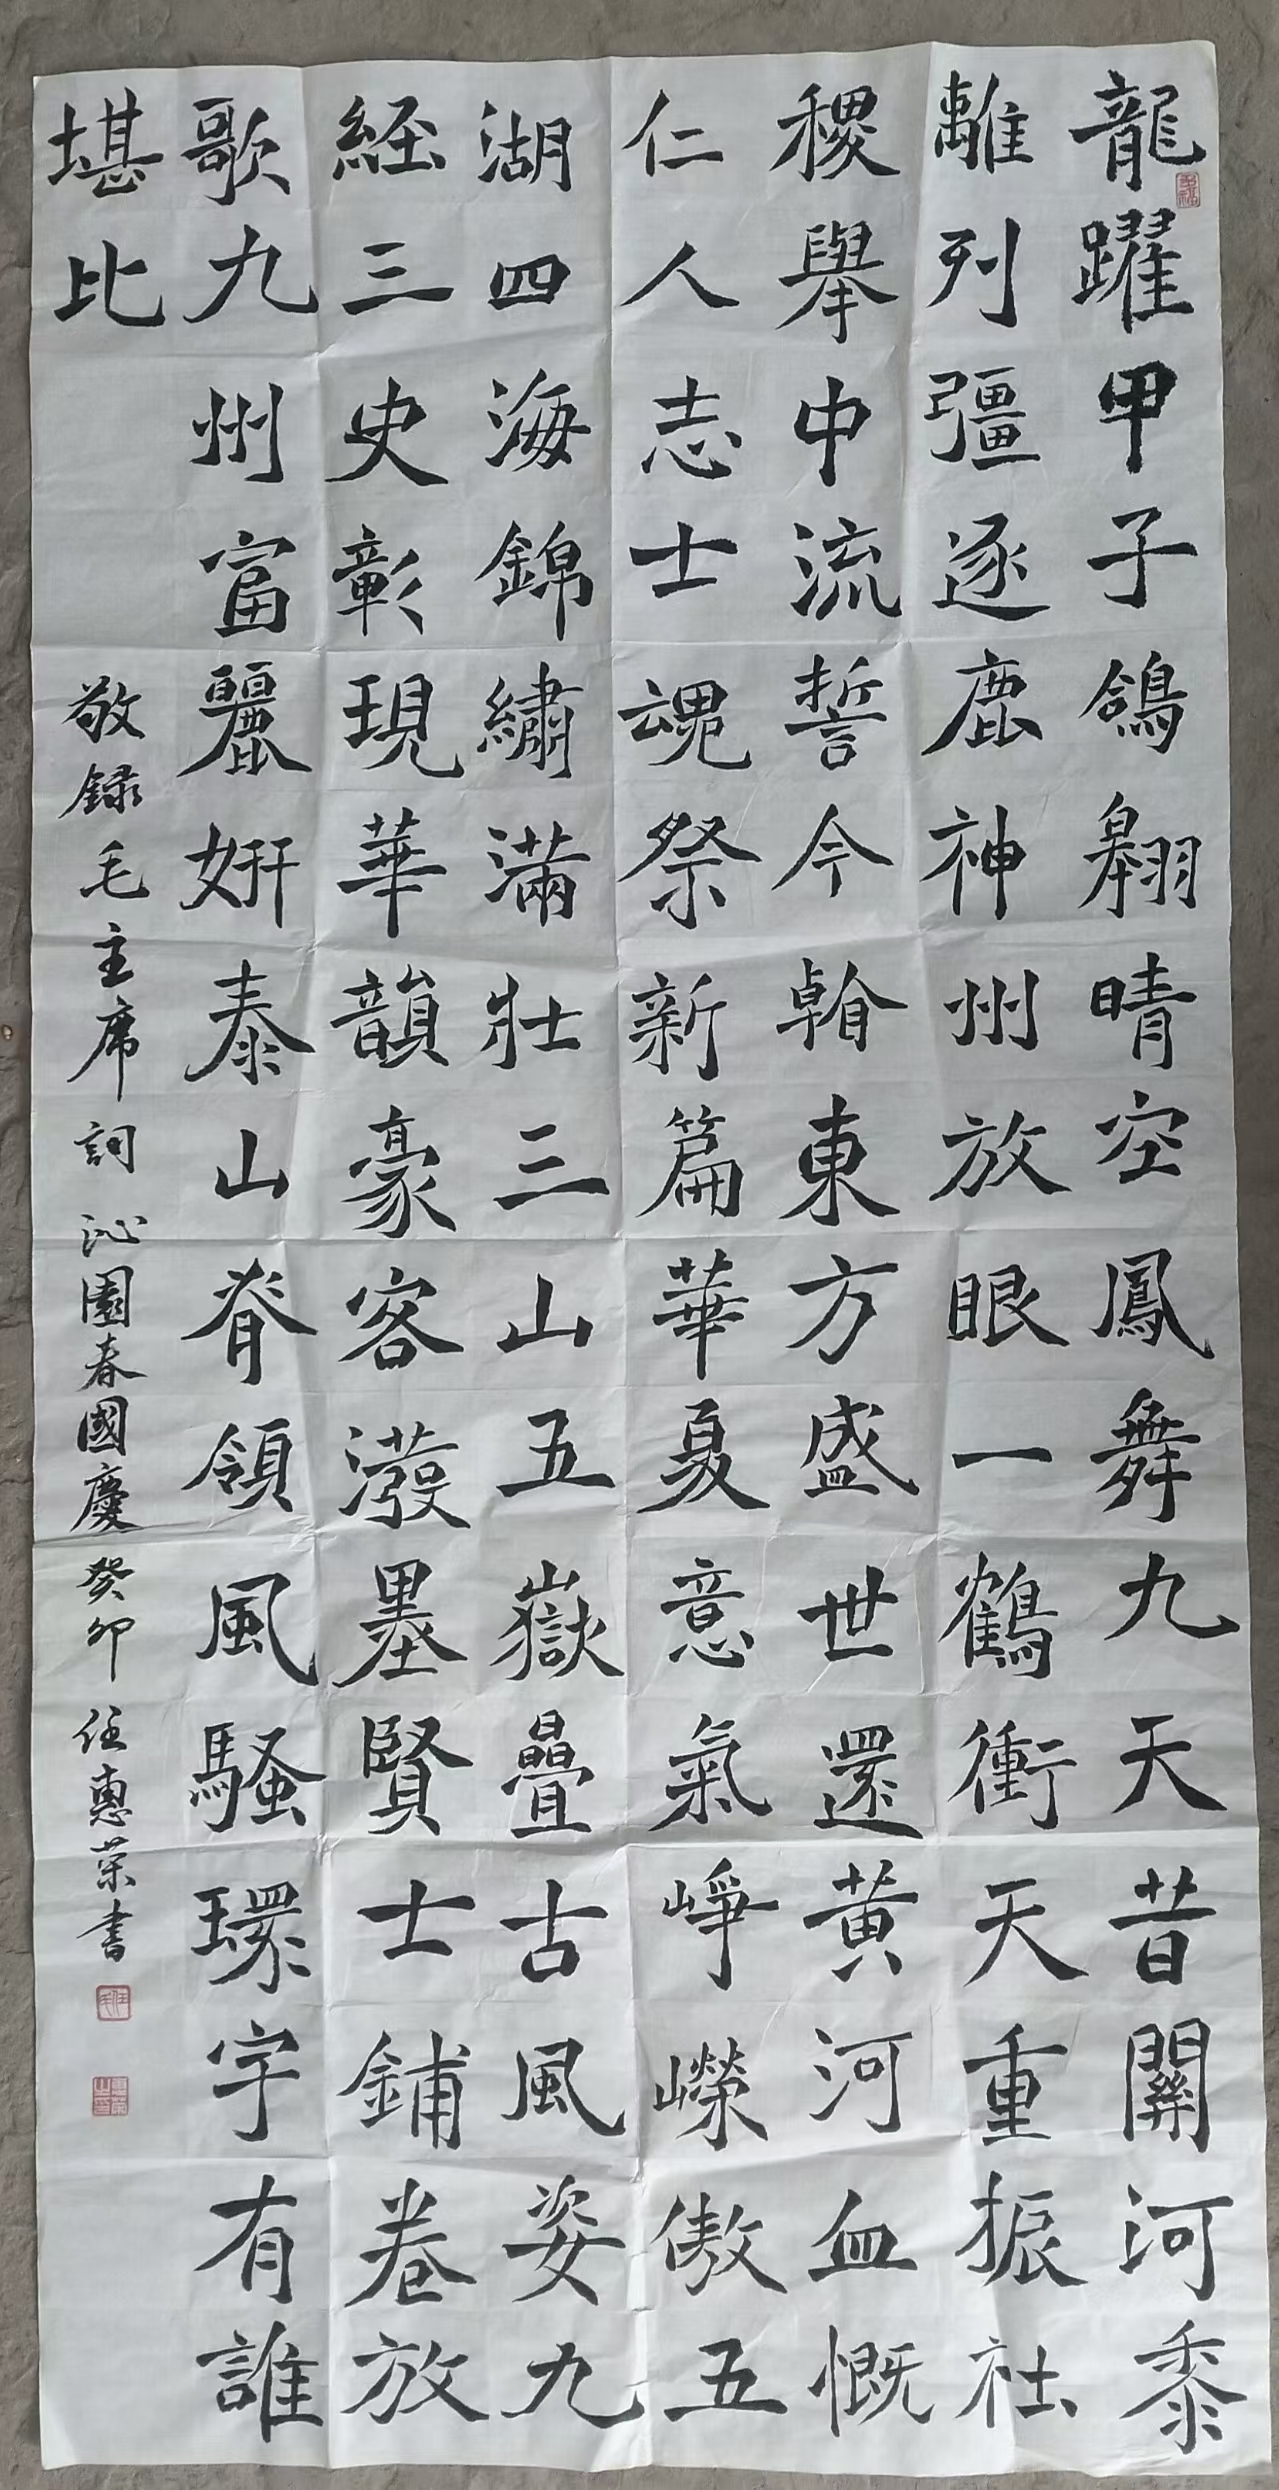 龍躍甲子鴿翱晴空鳳舞九天昔關河黍
離列彊逐鹿神州放眼一鶴衝天重振社
稷舉中流誓今翰東方盛世還黃河血慨
仁人志士魂祭新篇華夏意氣崢嶸傲五
湖四海錦繡滿壯三山五嶽疊古風姿九
經三史彰現華韻豪客潑墨賢士鋪卷放
歌九州富麗妍泰山脊領風騷環宇有誰
堪比
敬録毛主席詞沁園春國慶癸卯任惠荣書